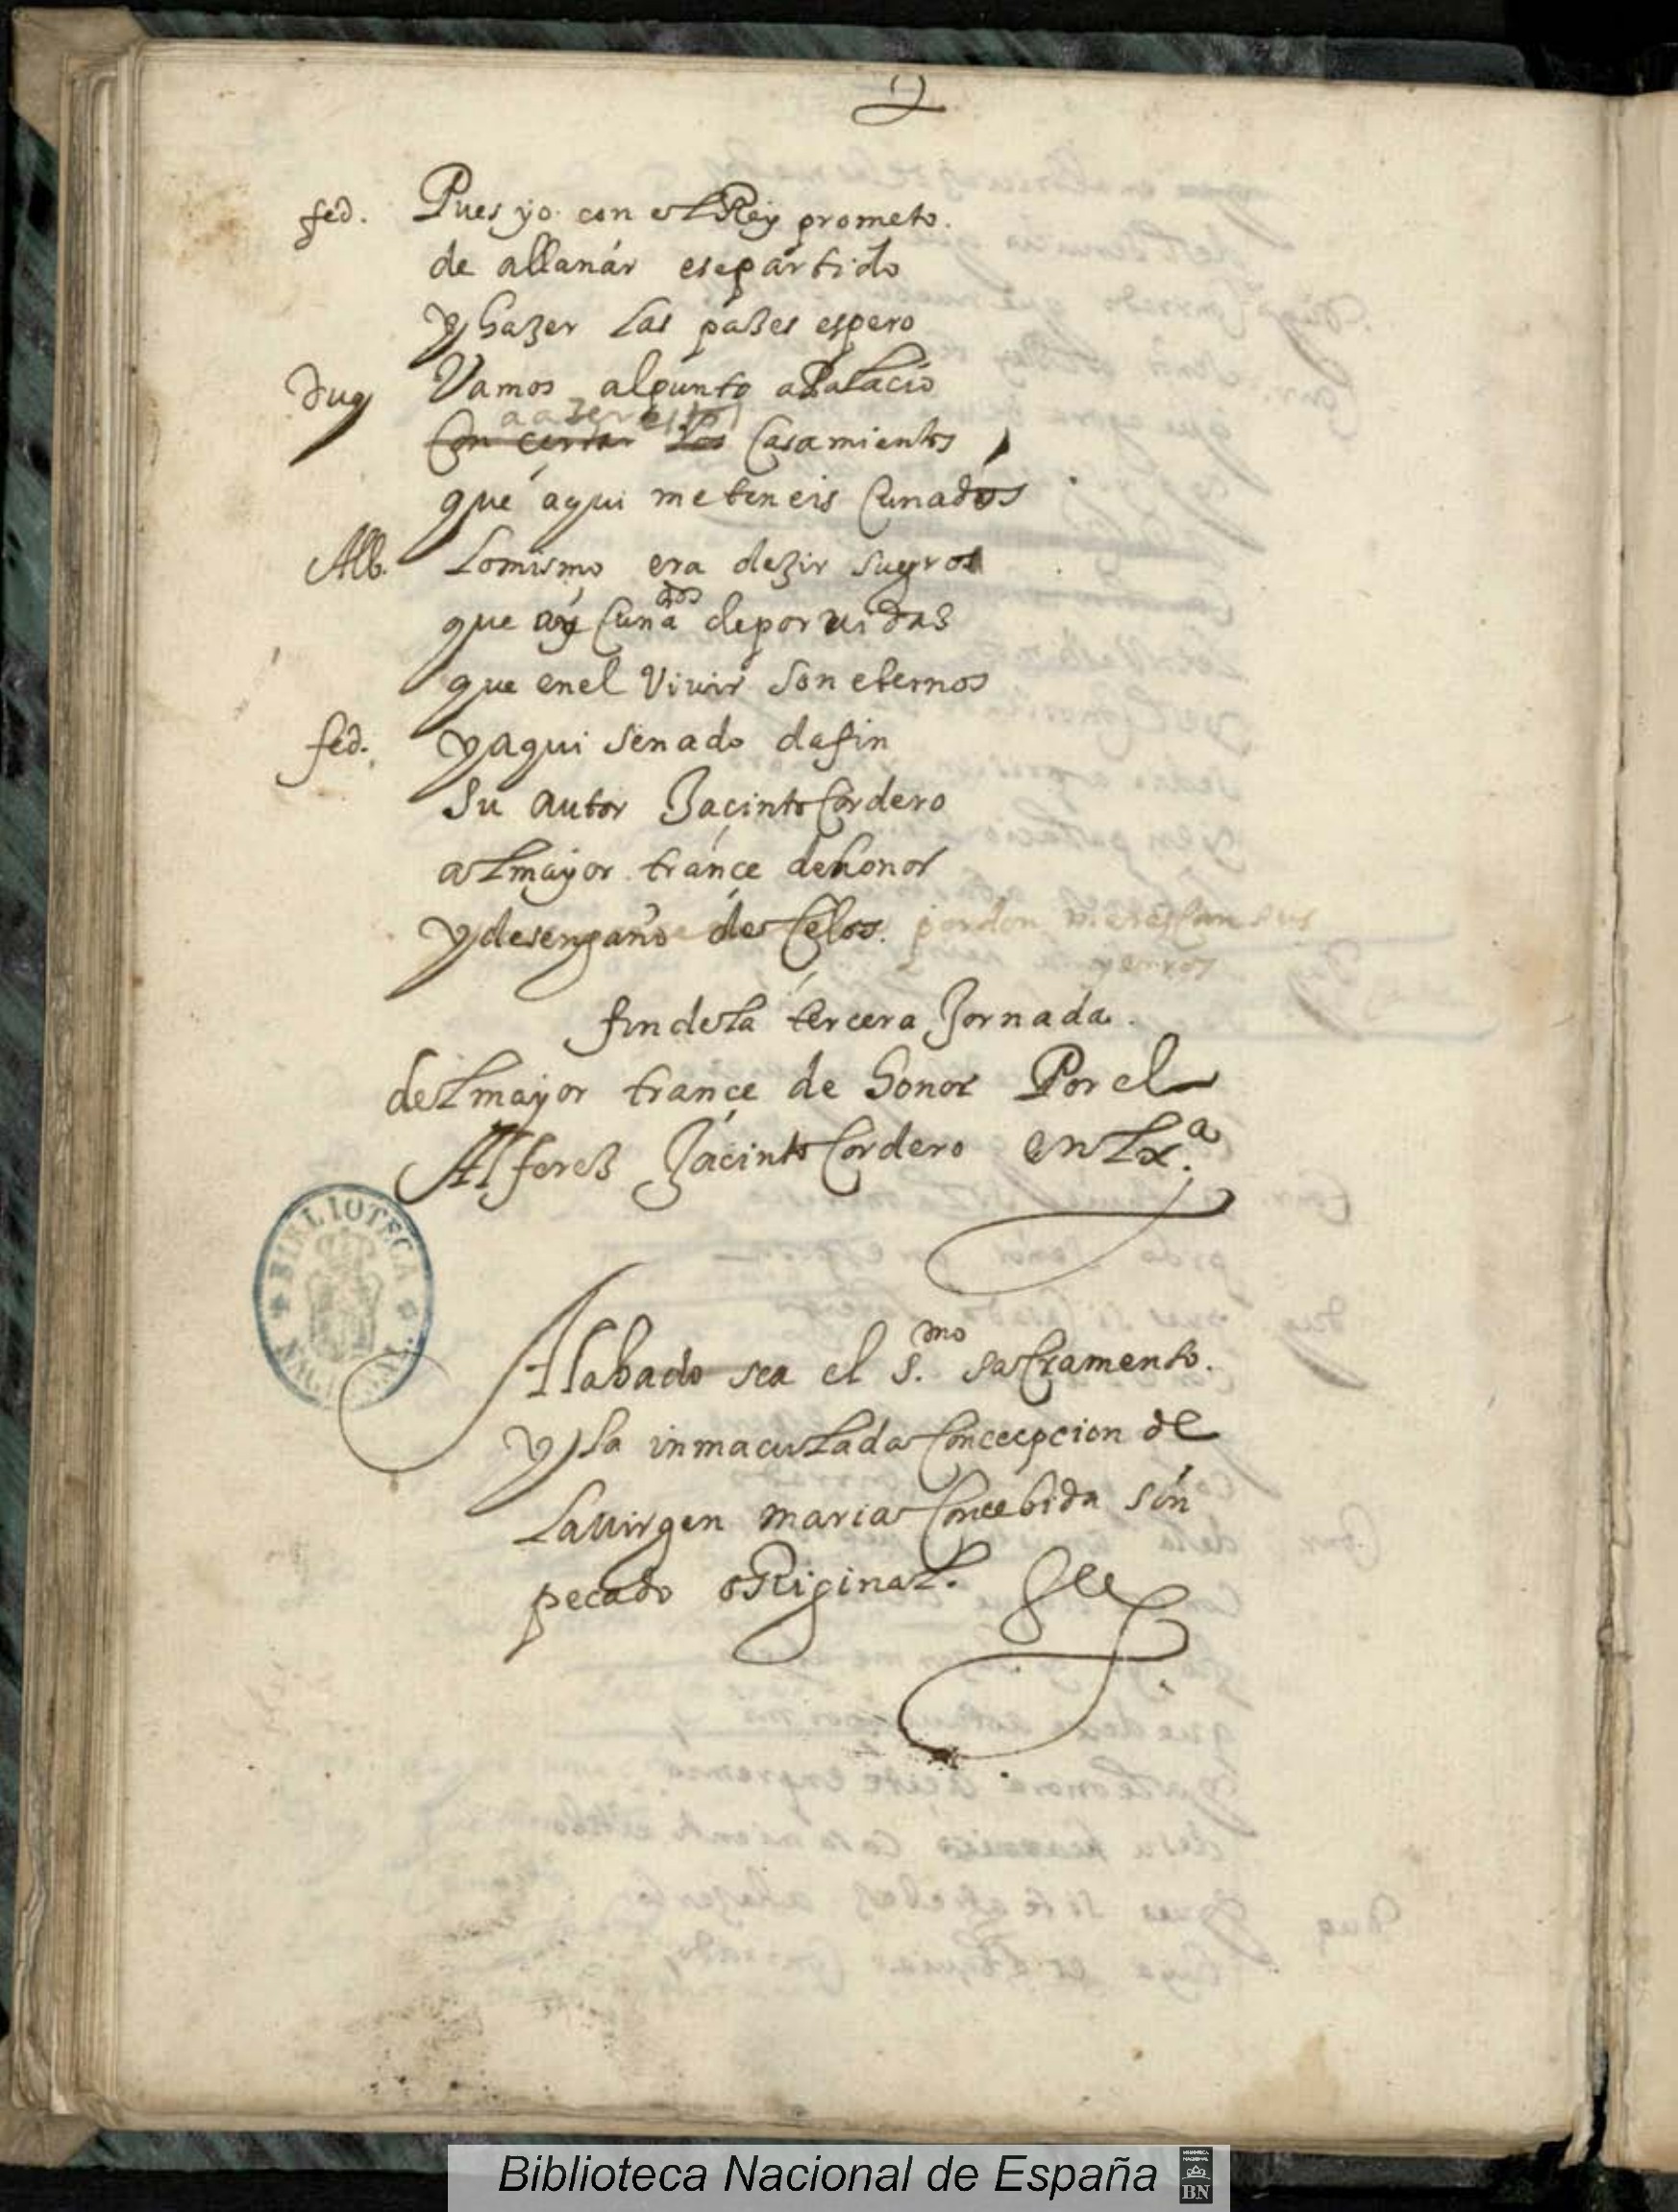 fed. Pues yo con el Rey prometo.
de allanár esepartido
y hazer las pazes espero
Duq Vamos alpunto aPalacio
aazer estos
Con certar los Casamientos
que aqui meteneis Cunados
Alb. Lomismo era dezir suegros
que ay Cunados deporuidas
que enel Viuir son eternos
fed. yaqui senado dafin
Su autor Jacinto Cordero
al mayor trançe dehonor
y desengaño de Celos. perdon
yerros
fin dela tercera Jornada.
del mayor trançe de honor Por el
Alferez Jacinto Cordero en Lxª.
Alabado sea el S.mo sacramento.
y la inmaculada Concepcion de
la uirgen maria Concebida sin
pecado original.
BIBLIOTECA NACIONAL
Biblioteca Nacional de España
BIBLIOTECA NACIONAL
BN